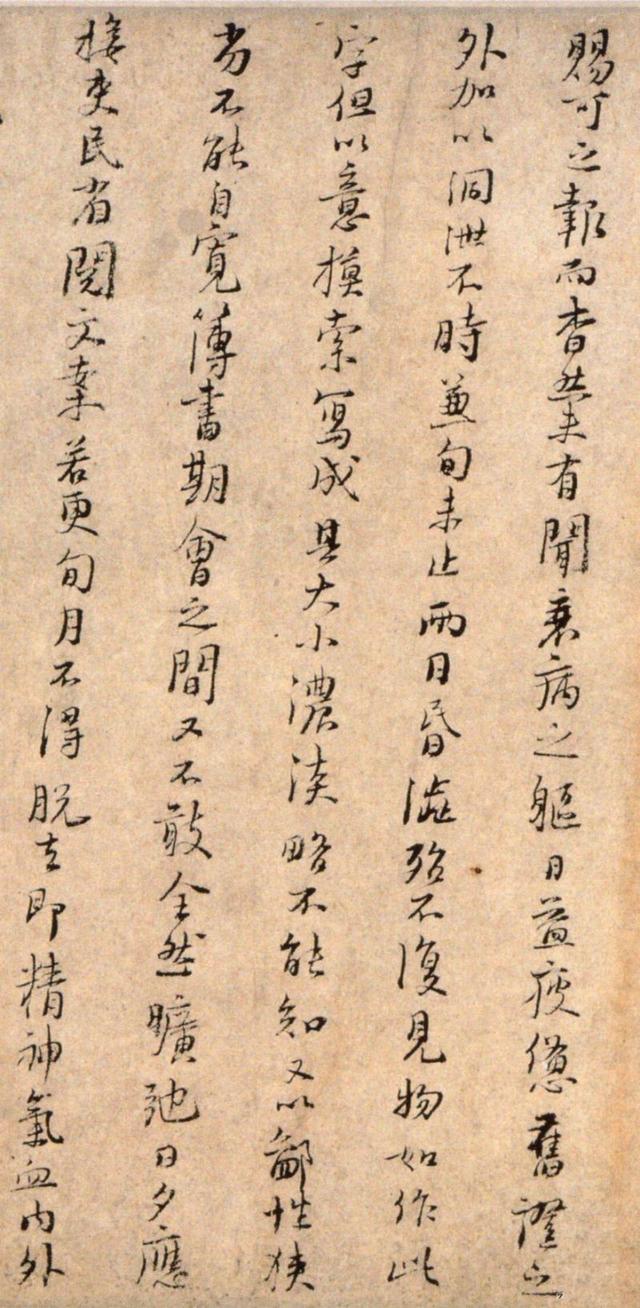 賜可之報而杳然未有聞衰病之軀日益疲憊舊證之
外加以洞泄不時兼旬未止兩目昏澁殆不復見物如作此
字但以意摸索寫成其大小濃淡略不能知又以鄙性狹
劣不能自寬簿書期會之間又不敢全然曠弛日夕應
接吏民省閱文案若更旬月不得脫去即精神氣血內外